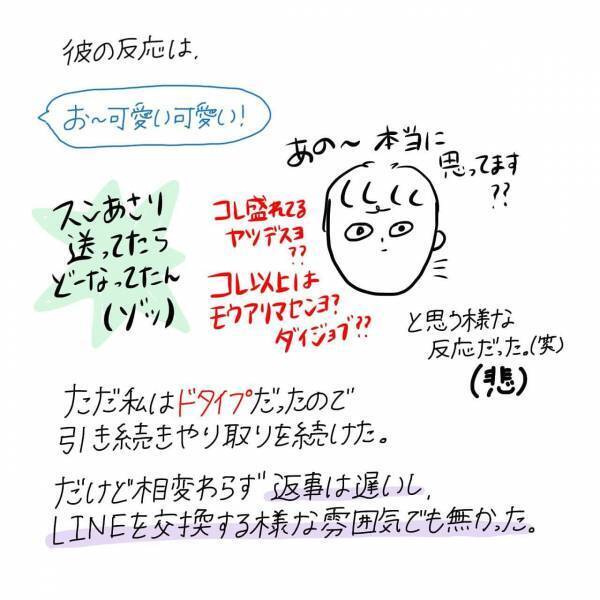 彼の反応は、
お〜可愛い可愛い!
あの〜本当に
思ってます
??
スンあさり
送ってたら
どーなってたん
(ゾッ)
コレ盛れてる
ヤツデスヨ
??
コレ以上は
モウアリマセンヨ?
ダイジョブ??
と思う様な
反応だった。(笑)
(悲)
ただ私はドタイプだったので
引き続きやり取りを続けた。
だけど相変わらず返事は遅いし、
LINEを交換する様な雰囲気でも無かった。